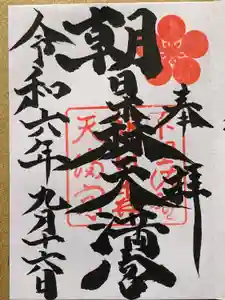 奉拝
朝日森天満宮
令和六年九月十六日